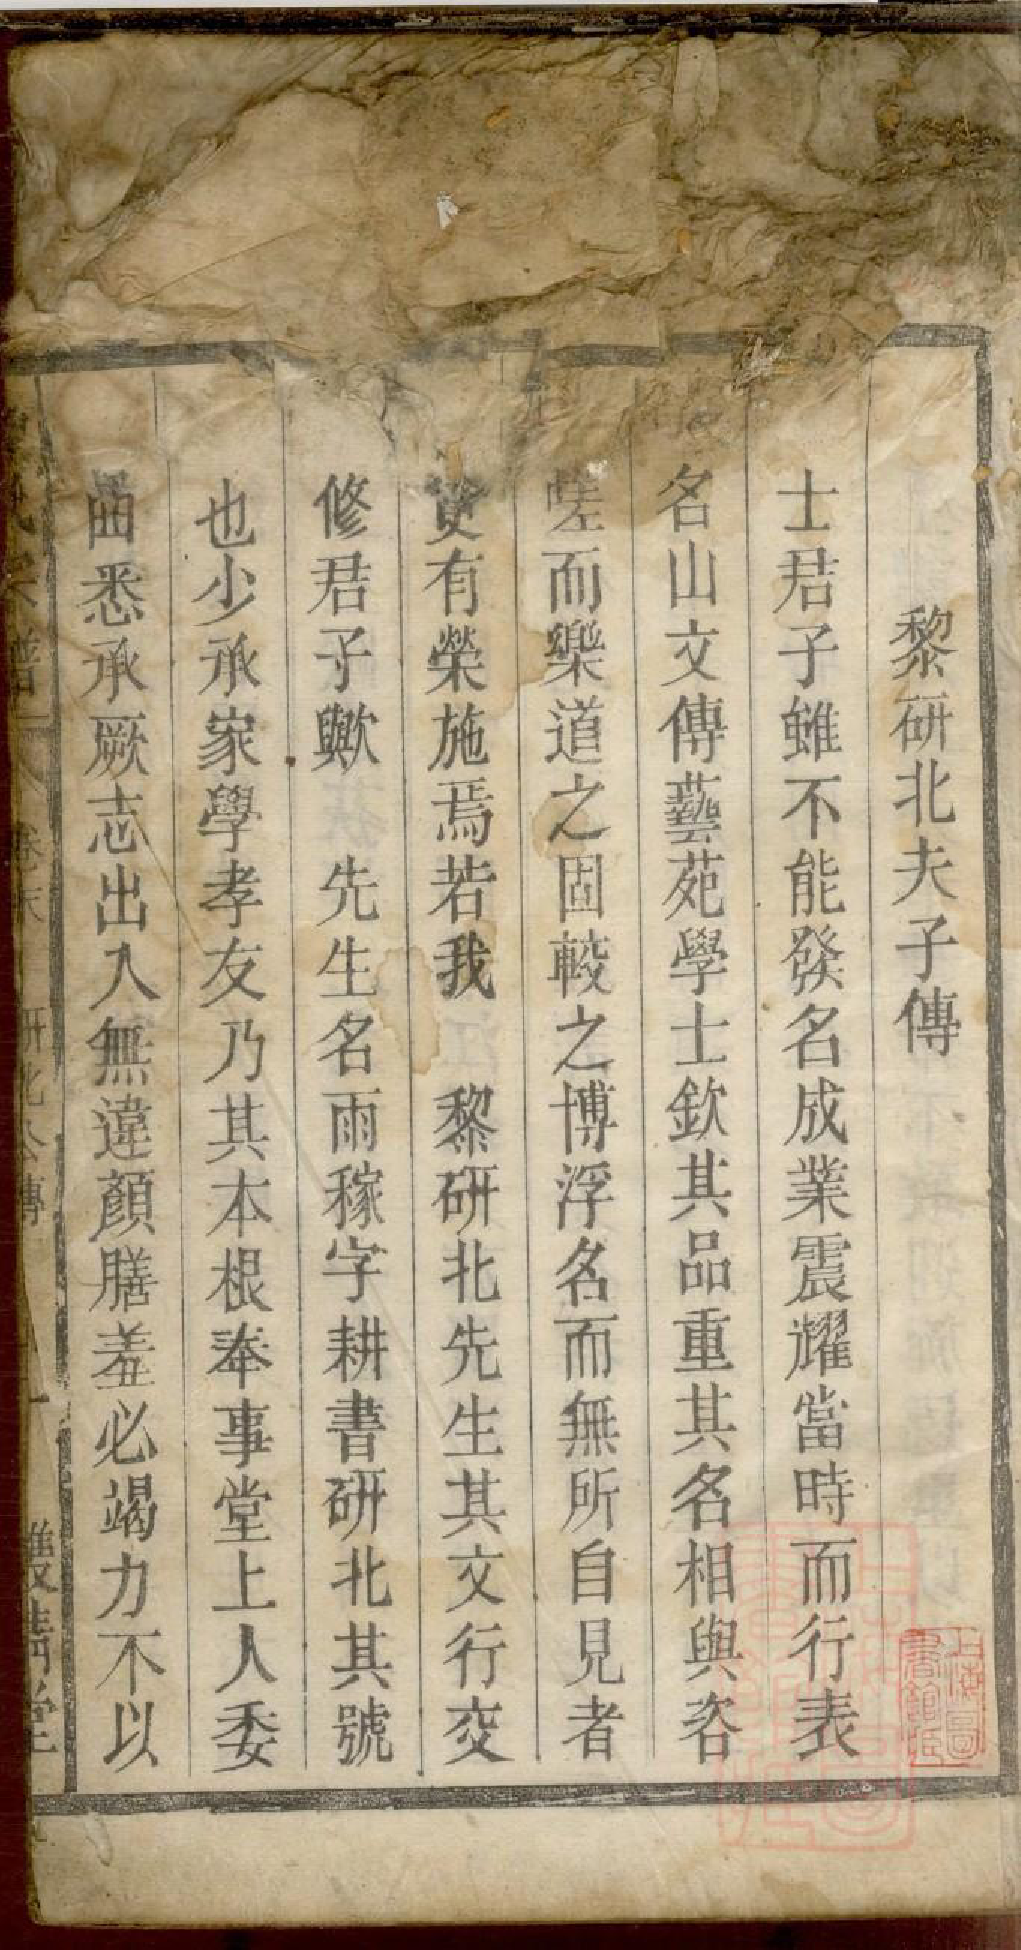 黎研北夫子傳
士君子雖不能發名成業震耀當時而行表
名山文傳藝苑學士欽其品重其名相與咨
嗟而樂道之固較之博浮名而無所自見者
更有榮施焉若我 黎研北先生其文行交
修君子歟 先生名雨稼字耕書研北其號
也少承家學孝友乃其本根奉事堂上人委
曲悉承厥志出入無違顏膳羞必竭力不以
卷末 研北公傳
上海圖書館藏